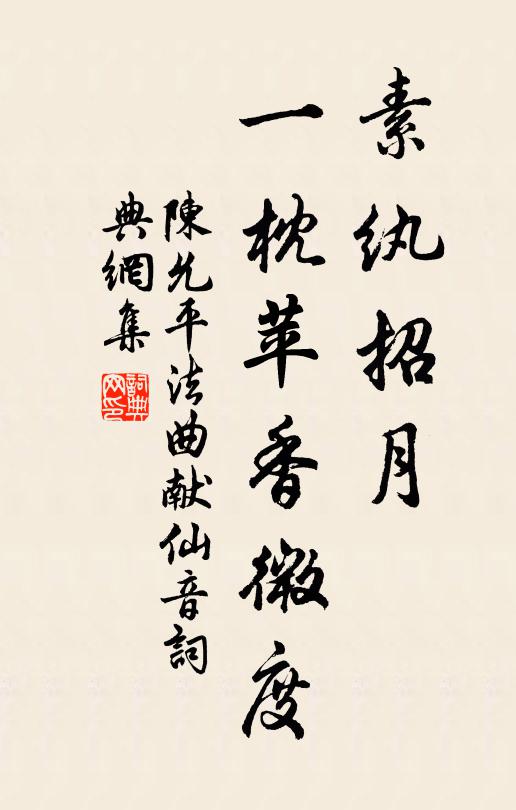 素纨招月
一枕苹香微度
陳允平法曲献仙音詞
典網集
詞典
网印